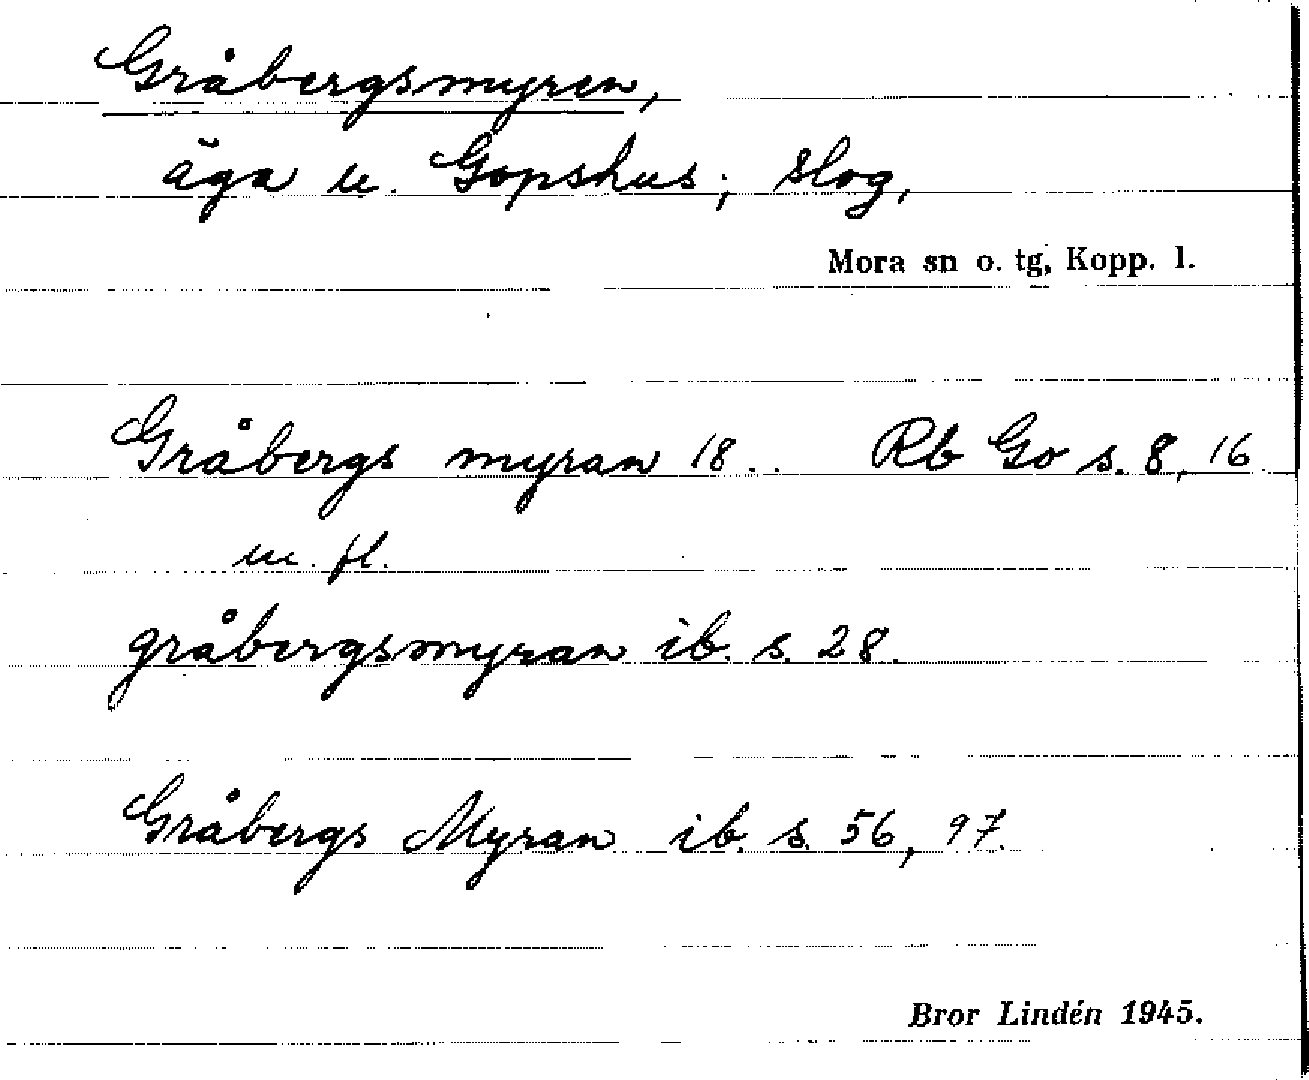 Gråbergsmyren,
äga u. Gopshus; slog,
Mora sn o. tg, Kopp. l.
Gråbergs myran 18.. Rb Go s. 8, 16
m. fl.
gråbergsmyran ib. s. 28.
Gråbergs Myran ib. s. 56, 97.
Bror Lindén 1945.